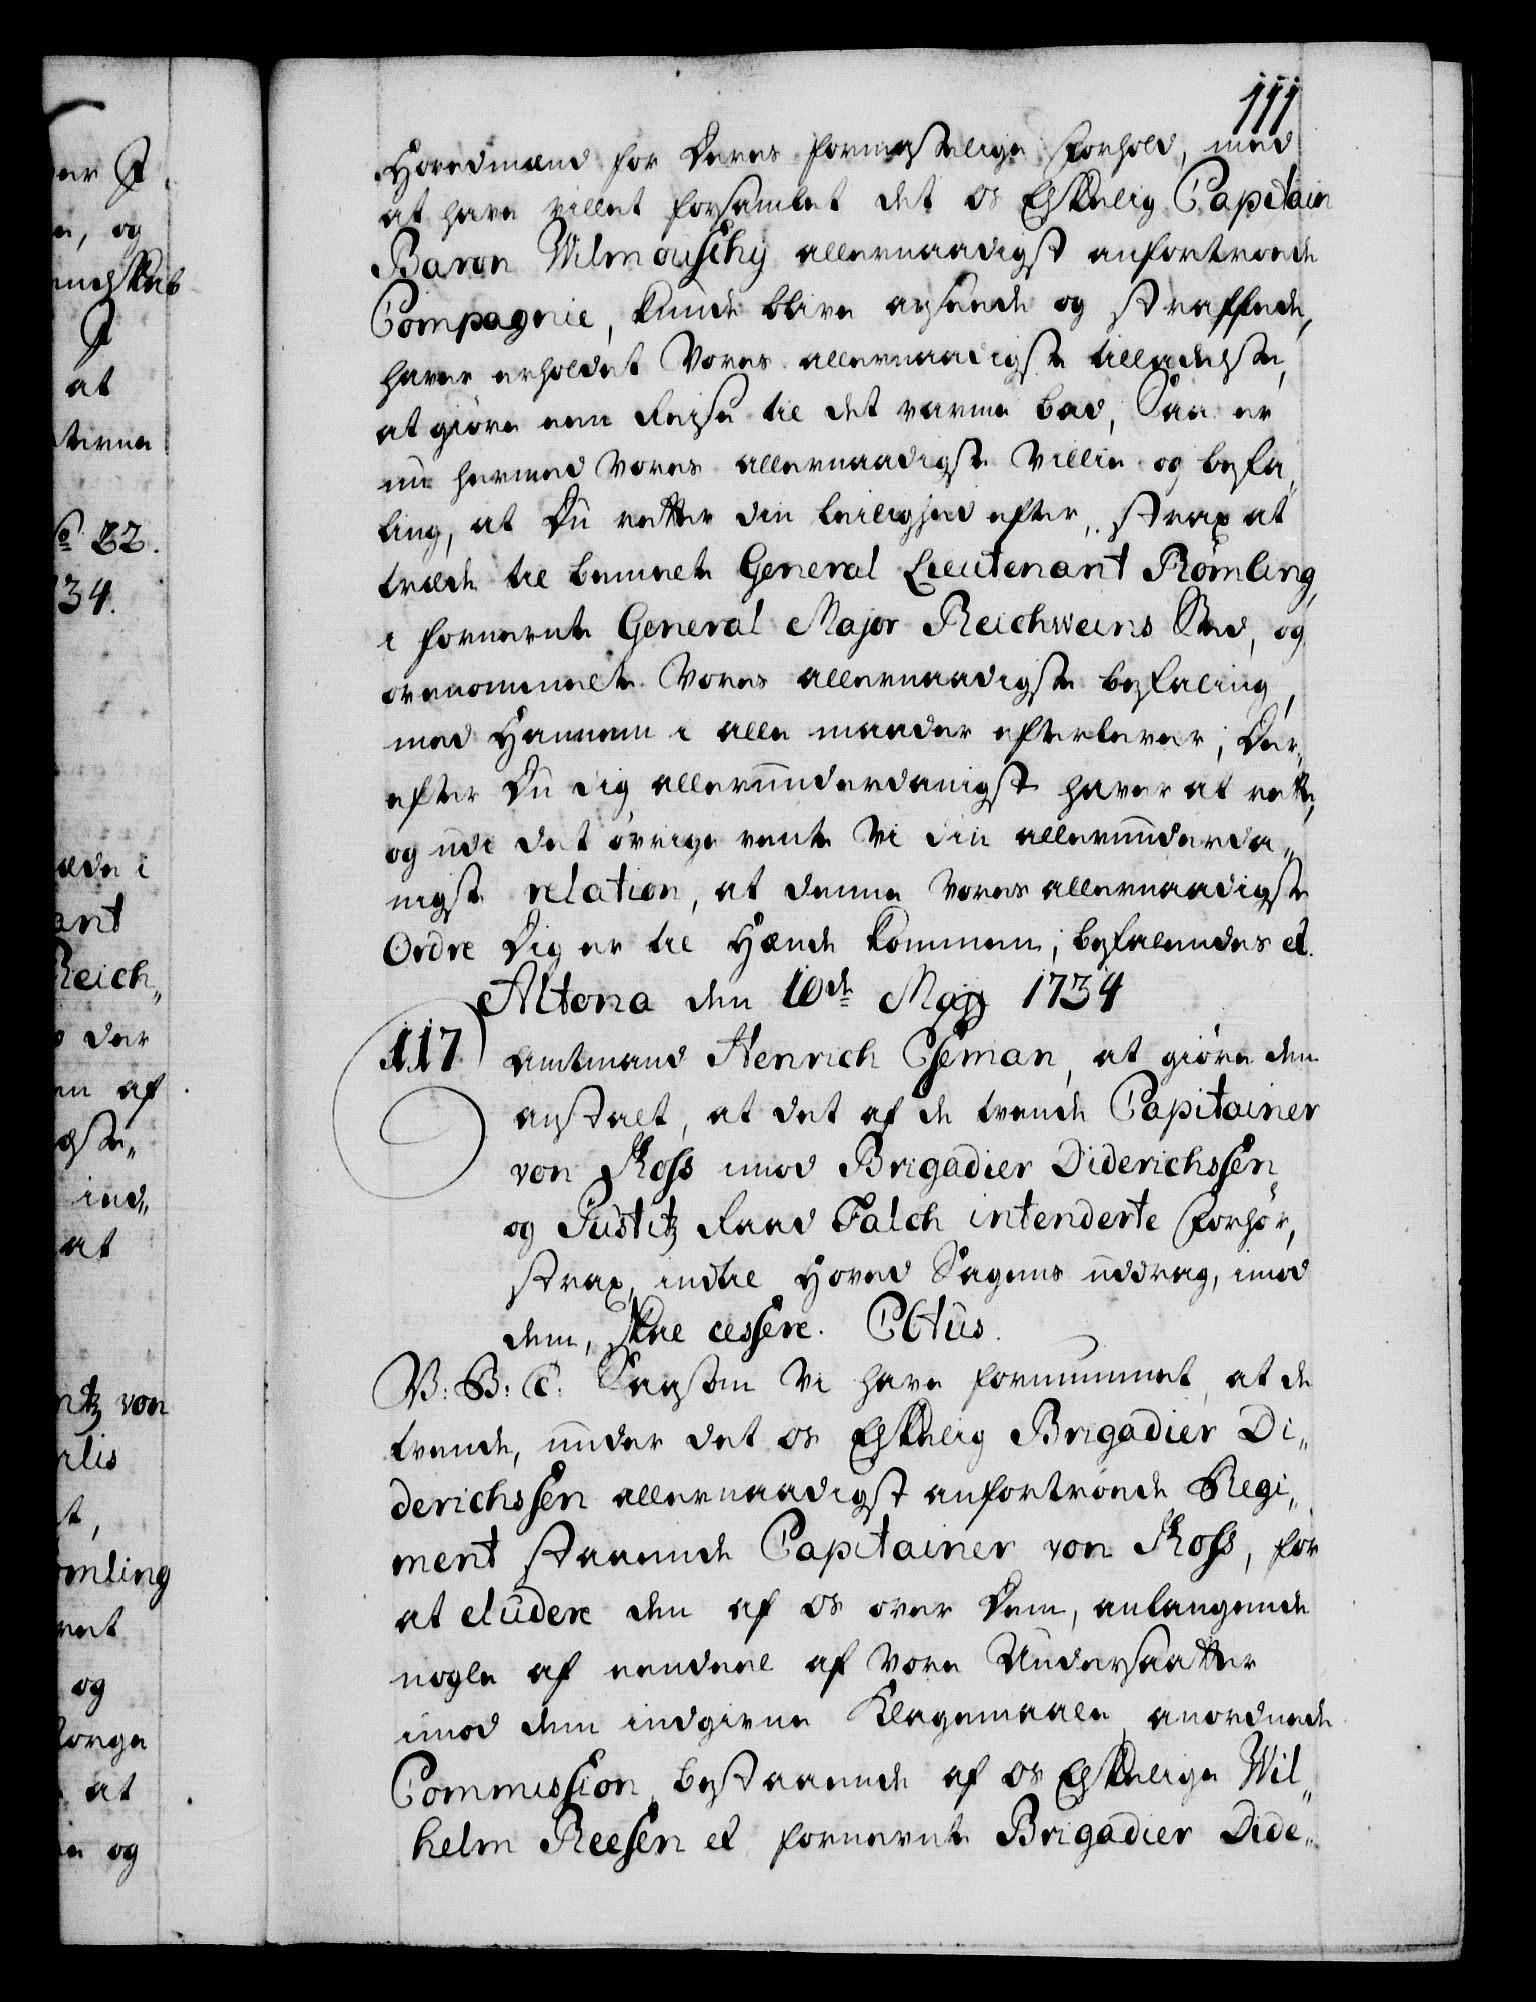 111
Hovedmænd for deres formastelige forhold, med
at have villet forsamlet det os Elskelig Capitain
Baron Wilmouschy allernaadigst anfortroede
Compagnie, kunde blive anseede og straffede,
haver erholdet Vores allernaadigste tilladelse,
at giøre een Reise til det varme bad, Saa er
nu hermed Vores allernaadigste Villie og befa„
ling, at Du retter din leilighed efter, strax at
træde til bemelte General Lieutenant Römling,
i fornevnte General Major Reichweins Sted, og
ovenommelte Vores allernaadigste befaling,
med Hannem i alle maader efterlever, Der„
efter Du dig allerunderdanigst haver at rette,
og udi det øvrige vente Vi din allerunderda„
nigst relation, at denne Vores allernaadigste
Ordre Dig er til Hænde kommen; befalendes et.
Altona den 10de Maji 1734
117 Amtmand Henrich Oseman, at giøre den
anstalt, at det af de tvende Capitainer
von Koss imod Brigadier Diderichssen
og Justitz Raad Falch intenderte forhør,
strax, indtil Hoved Sagens uddrag, imod
dem, skal cessere. CVtus.
V: B: C: Saasom Vi have fornummet, at de
tvende, under det os Elskelig Brigadier Di„
derichssen allernaadigst anfortroede Regi„
ment staaende Capitainer von Koss, for
at eludere den af os over dem, anlangende
nogle af eendeel af Vore Undersaatter
imod dem indgivne Klagemaale, anordnede
Commission, bestaaende af os Elskelige Wil„
helm Reesen et fornevnte Brigadier Dide„